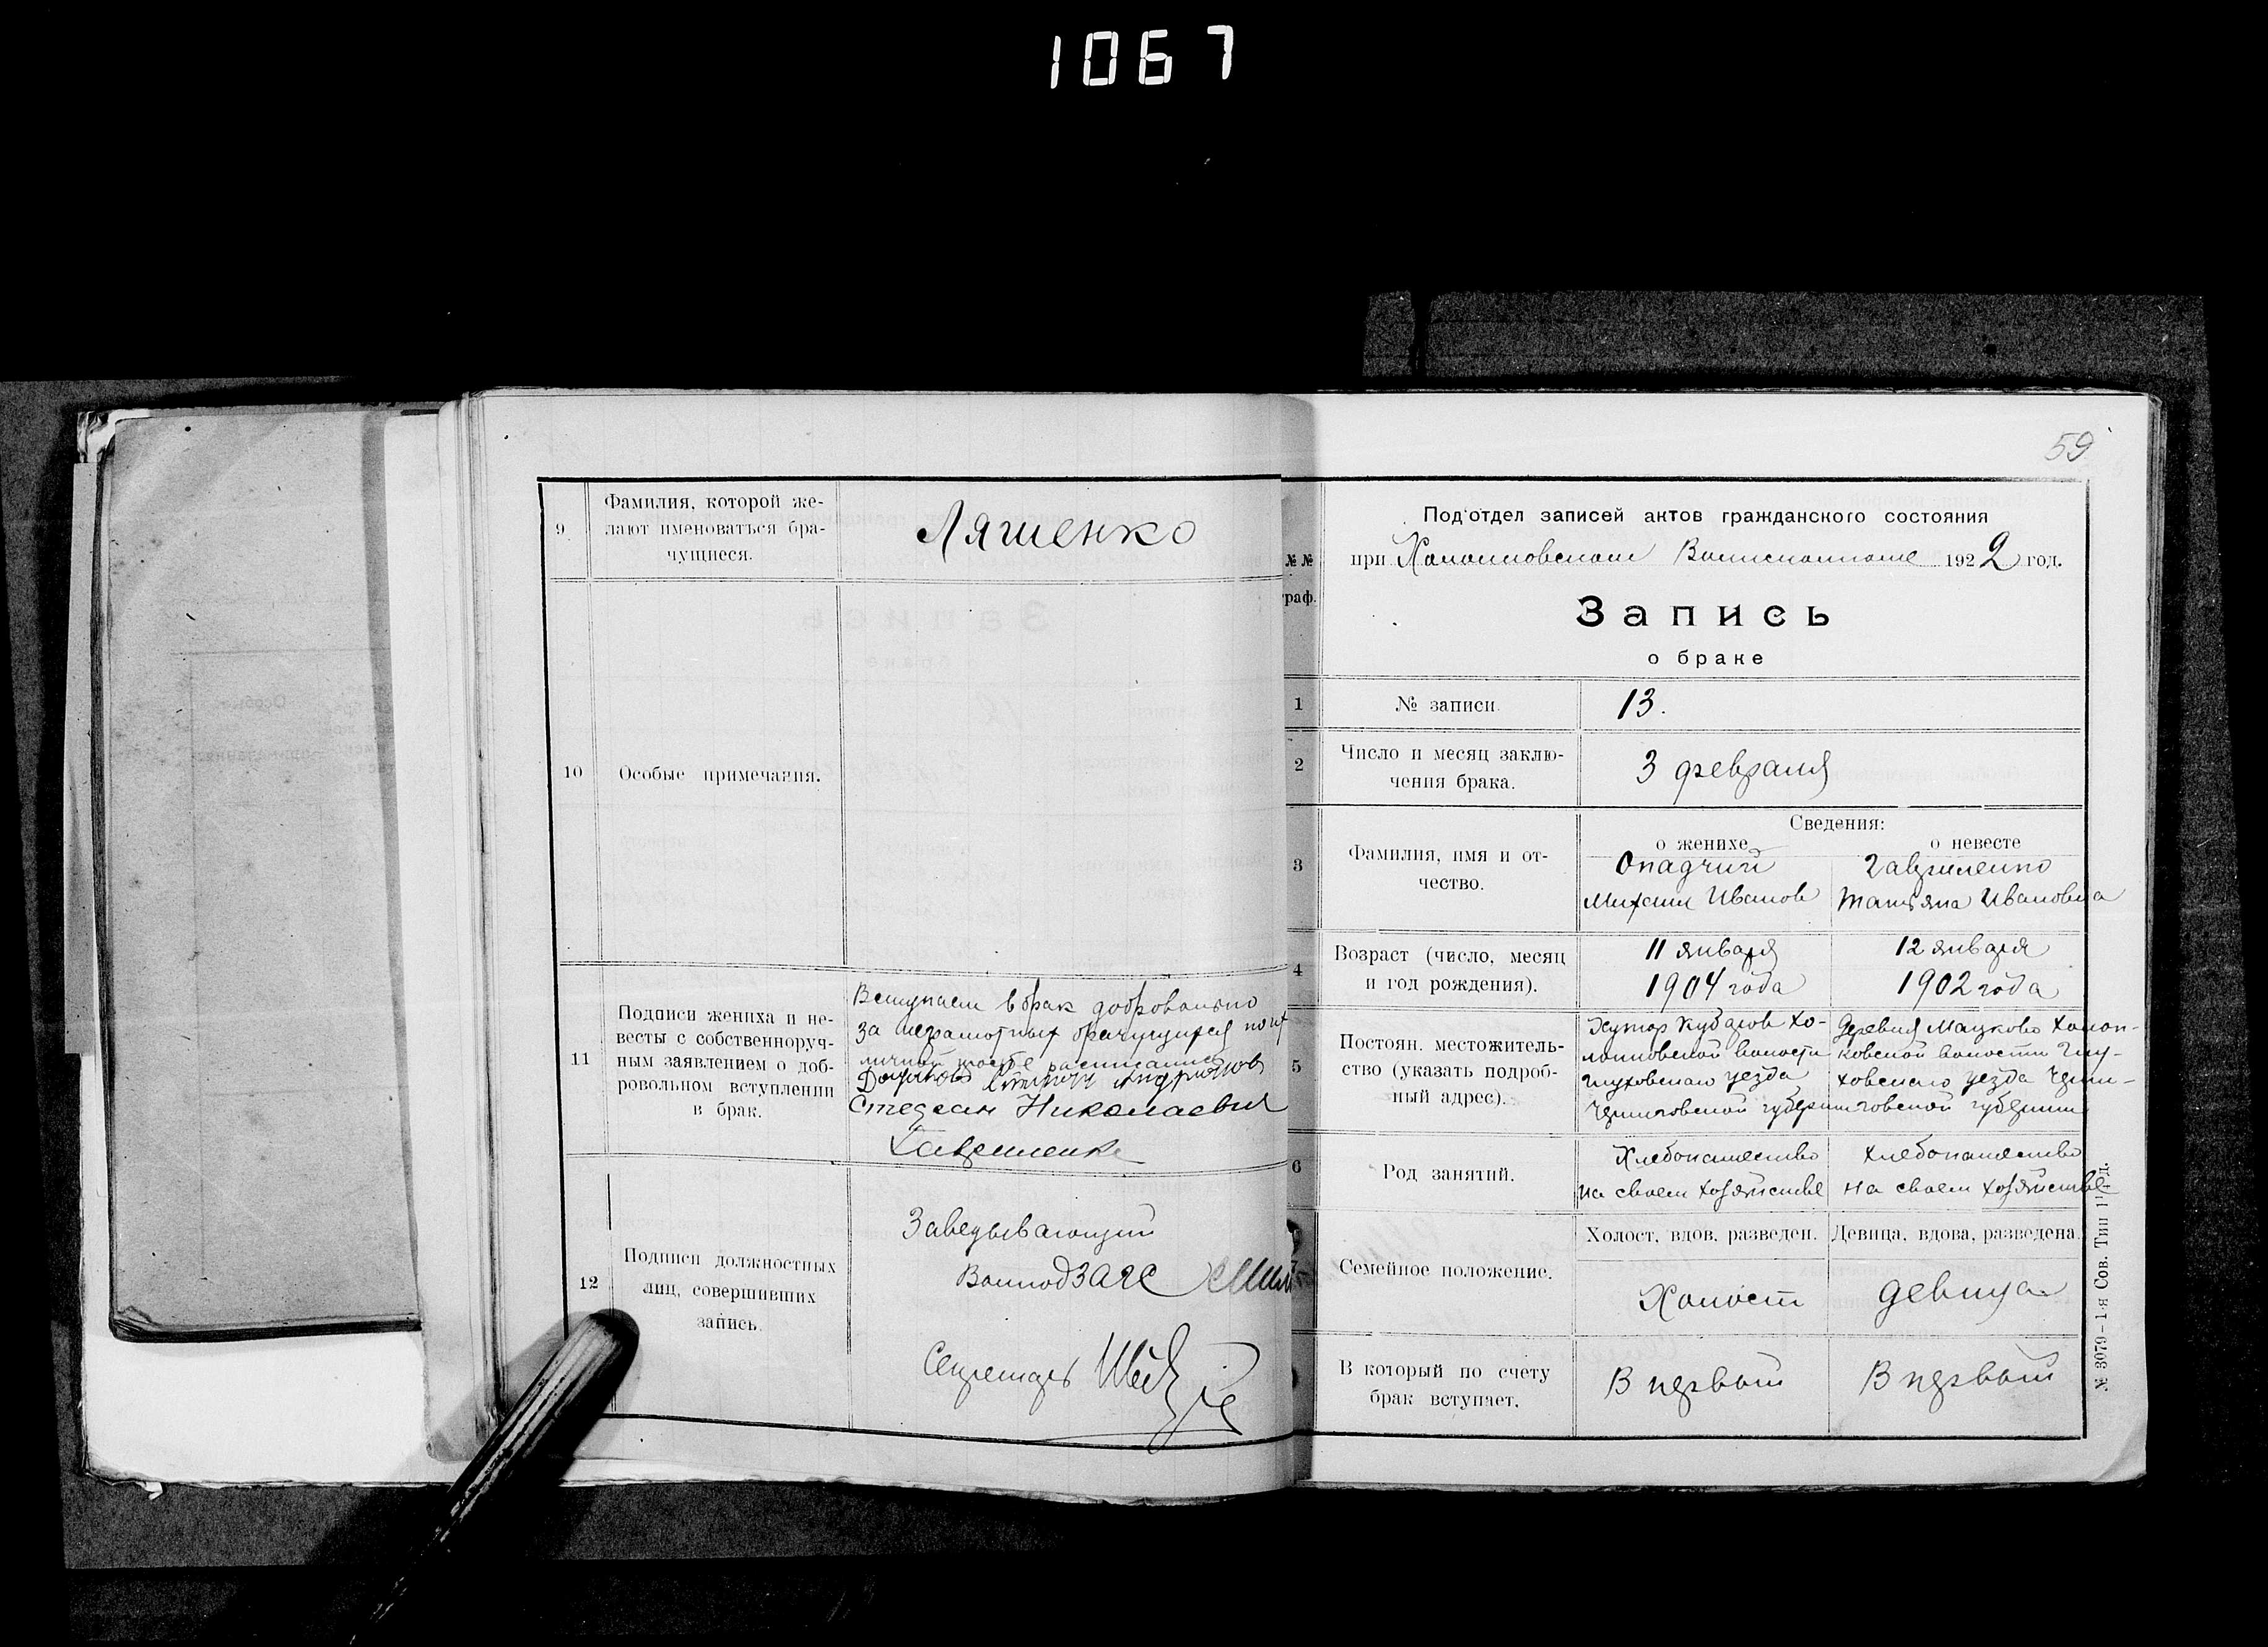 1067
9
Фамилия, которой же-
лают именоваться бра-
чущиеся.
Ляшенко
10
Особые примечания.
11
Подписи жениха и не-
весты с собственноруч-
ным заявлением о доб-
ровольном вступлении
в брак.
Вступаем в брак добровольно
за неграмотных брачущихся по их
личной просьбе расписались
Стефан Николаевич
Гавриленко
12
Подписи должностных
лиц, совершивших
запись.
Заведывающий
ВолподЗАГС
Секретарь
59
Под'отдел записей актов гражданского состояния
№ №
граф.
при Холопковском Волисполкоме 1922 год.
Запись
о браке
1
№ записи
13.
2
Число и месяц заклю-
чения брака.
3 февраля
Сведения:
о женихе
о невесте
3
Фамилия, имя и от-
чество.
Опадчий
Михаил Иванов
Гавриленко
Татьяна Ивановна
4
Возраст (число, месяц
и год рождения).
11 января
1904 года
12 января
1902 года
5
Постоян. местожитель-
ство (указать подроб-
ный адрес).
Хутор Кубаров Хо-
лопковской волости
Глуховского уезда
Черниговской губернии
Деревня Мацково Холоп-
ковской волости Глу-
ховского уезда Черни-
говской губернии
6
Род занятий.
Хлебопашество
на своем хозяйстве
Хлебопашество
на своем хозяйстве
Семейное положение.
Холост, вдов, разведен.
Девица, вдова, разведена.
Холост
девица
В который по счету
брак вступает.
В первый
В первый
№ 3079-1-я Сов. Тип